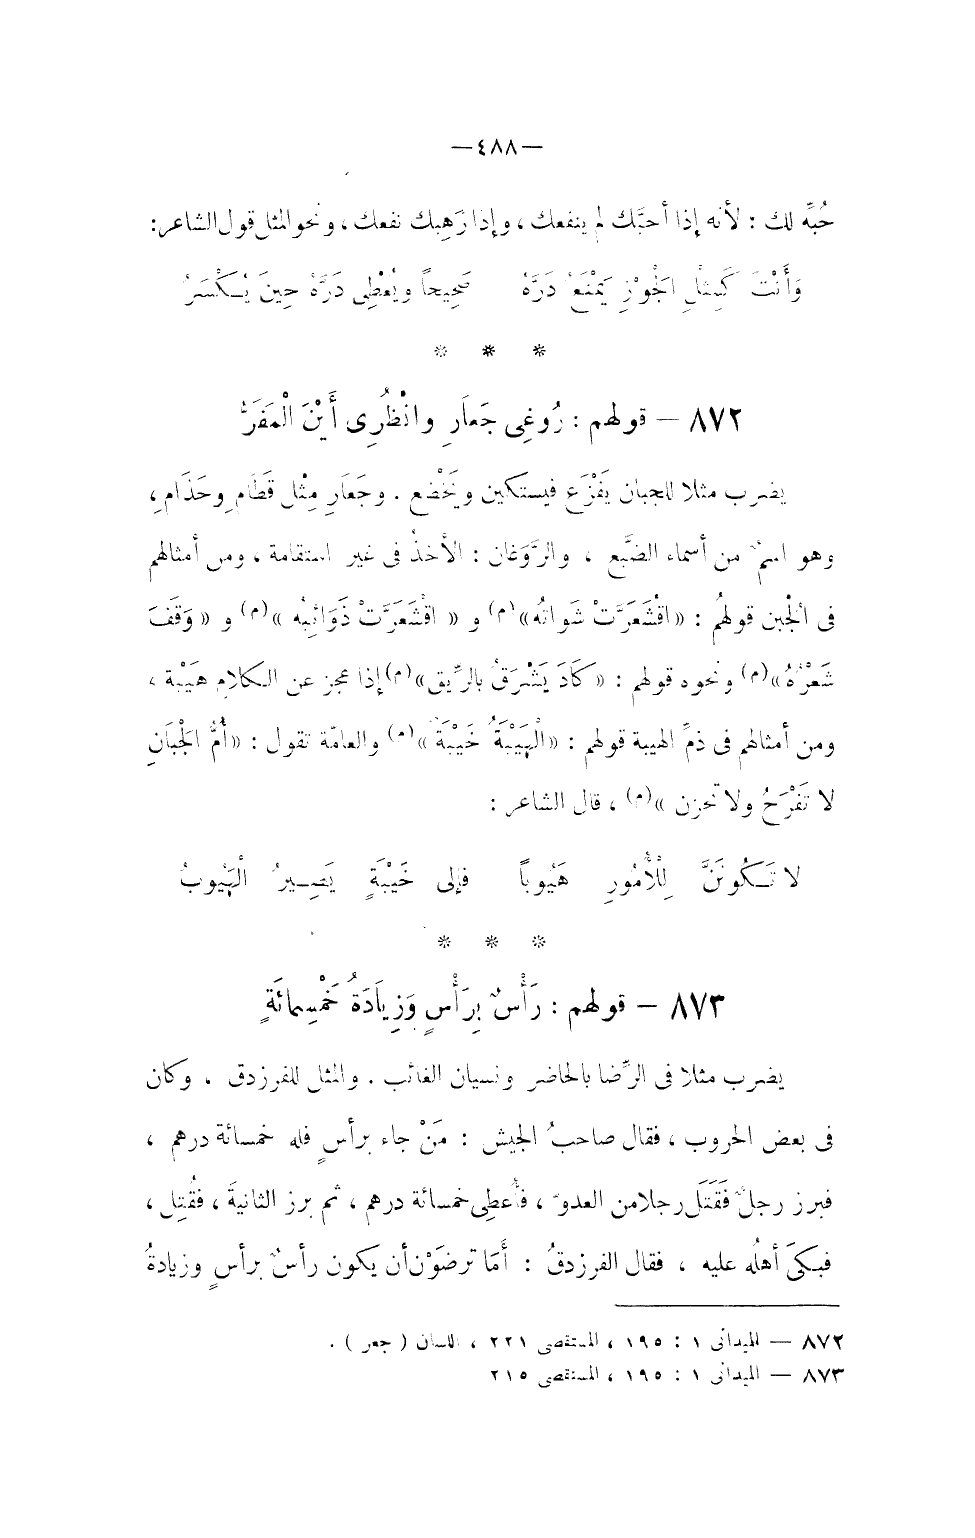 — ٤٨٨ —
حُبِّه لك : لأنه إذا أحبَّك لم ينفعك ، وإذا رَهِبك نفعك ، ونحو المثل قول الشاعر :
وَأَنْتَ كَمِثْلِ الْجَوْزِ يَمْنَعُ دَرَّهُ صَحِيحاً ويُعْطِى دَرَّهُ حِينَ يُكْسَرُ
* * *
٨٧٢ — قولهم : رُوغِى جَعَارِ وانْظُرِى أَيْنَ الْمَفَرُّ
يضرب مثلا للجبان يَفْزَع فيستكين ويَخْضع . وجَعَارِ مِثْل قَطَامِ وحَذَامِ ،
وهو اسمٌ من أسماء الضَّبُع ، والرَّوَغان : الأخذُ فى غير استقامة ، ومن أمثالهم
فى الْجُبن قولهُم : «اقْشَعَرَّتْ شَواتُه»(م) و « اقْشَعَرَّتْ ذَوَائِبُه »(م) و « وَقَفَ
شَعْرُهُ»(م) ونحوه قولهم : «كَادَ يَشْرَقُ بالرِّيق»(م) إذا عجز عن الكلام هَيْبة ،
ومن أمثالهم فى ذمِّ الهيبة قولهم : «الْهَيْبَةُ خَيْبَة »(م) والعامّة تقول : «أُمُّ الْجَبَانِ
لا تَفْرَحُ ولا تحزن »(م) ، قال الشاعر :
لا تَكُونَنَّ لِلْأُمُورِ هَيُوباً فإلى خَيْبَةٍ يَصِيرُ الْهَيُوبُ
* * *
٨٧٣ — قولهم : رَأْسٌ بِرَأْسٍ وَزِيَادَةُ خَمْسِمائَةٍ
يضرب مثلا فى الرِّضا بالحاضر ونسيان الغائب . والمثل للفرزدق . وكان
فى بعض الحروب ، فقال صاحبُ الجيش : مَنْ جاء برأسٍ فله خمسمائة درهم ،
فبرز رجلٌ فَقَتَل رجلا من العدوّ ، فأُعطِى خمسمائة درهم ، ثم برز الثانيةَ ، فقُتِل ،
فبكَى أهلُه عليه ، فقال الفرزدقُ : أَمَا ترضَوْن أن يكون رأسٌ برأسٍ وزيادةُ
٨٧٢ — الميدانى ١ : ١٩٥ ، المستقصى ٢٢١ ، اللسان ( جعر ) .
٨٧٣ — الميدانى ١ : ١٩٥ ، المستقصى ٢١٥